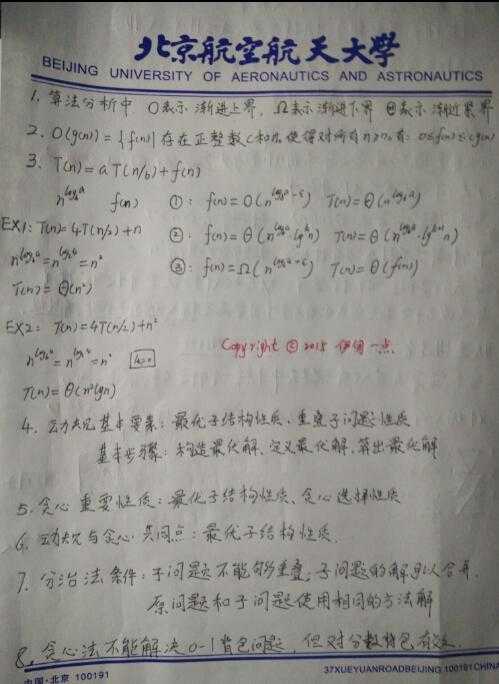 北京航空航天大學
BEIJING UNIVERSITY OF AERONAUTICS AND ASTRONAUTICS
1. 算法分析中 O表示渐进上界, Ω表示渐进下界 Θ表示渐近紧界
2. O(g(n)) = {f(n)| 存在正整数 C和n₀使得对所有n≥n₀有: 0≤f(n)≤cg(n)
3. T(n) = aT(n/b) + f(n)
n^{log_b a} f(n) ①: f(n) = O(n^{log_b a - ε}) T(n) = Θ(n^{log_b a})
EX1: T(n) = 4T(n/2) + n ②. f(n) = Θ(n^{log_b a}·lg^k n) T(n) = Θ(n^{log_b a}·lg^{k+1} n)
n^{log_b a} = n^{log_2 4} = n² ③: f(n) = Ω(n^{log_b a + ε}) T(n) = Θ(f(n))
T(n) = Θ(n²)
EX2: T(n) = 4T(n/2) + n²
Copyright © 2015 伊白一点
n^{log_b a} = n^{log_2 4} = n² k=0
T(n) = Θ(n² lgn)
4. 动规基本要素: 最优子结构性质、重叠子问题性质
基本步骤: 构造最优解、定义最优解、算出最优解
5. 贪心重要性质: 最优子结构性质、贪心选择性质
6. 动规与贪心共同点: 最优子结构性质.
7. 分治法条件: 子问题不能够重叠; 子问题的解可以合并.
原问题和子问题使用相同的方法解
8. 贪心法不能解决0-1背包问题, 但对分数背包有效.
中国·北京 100191 37XUEYUANROADBEIJING 100191CHINA